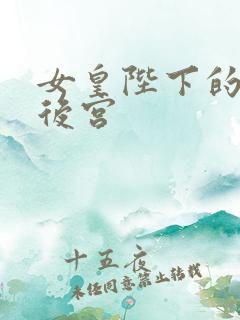 女皇陛下的
後宮
十五夜
未经同意禁止转载